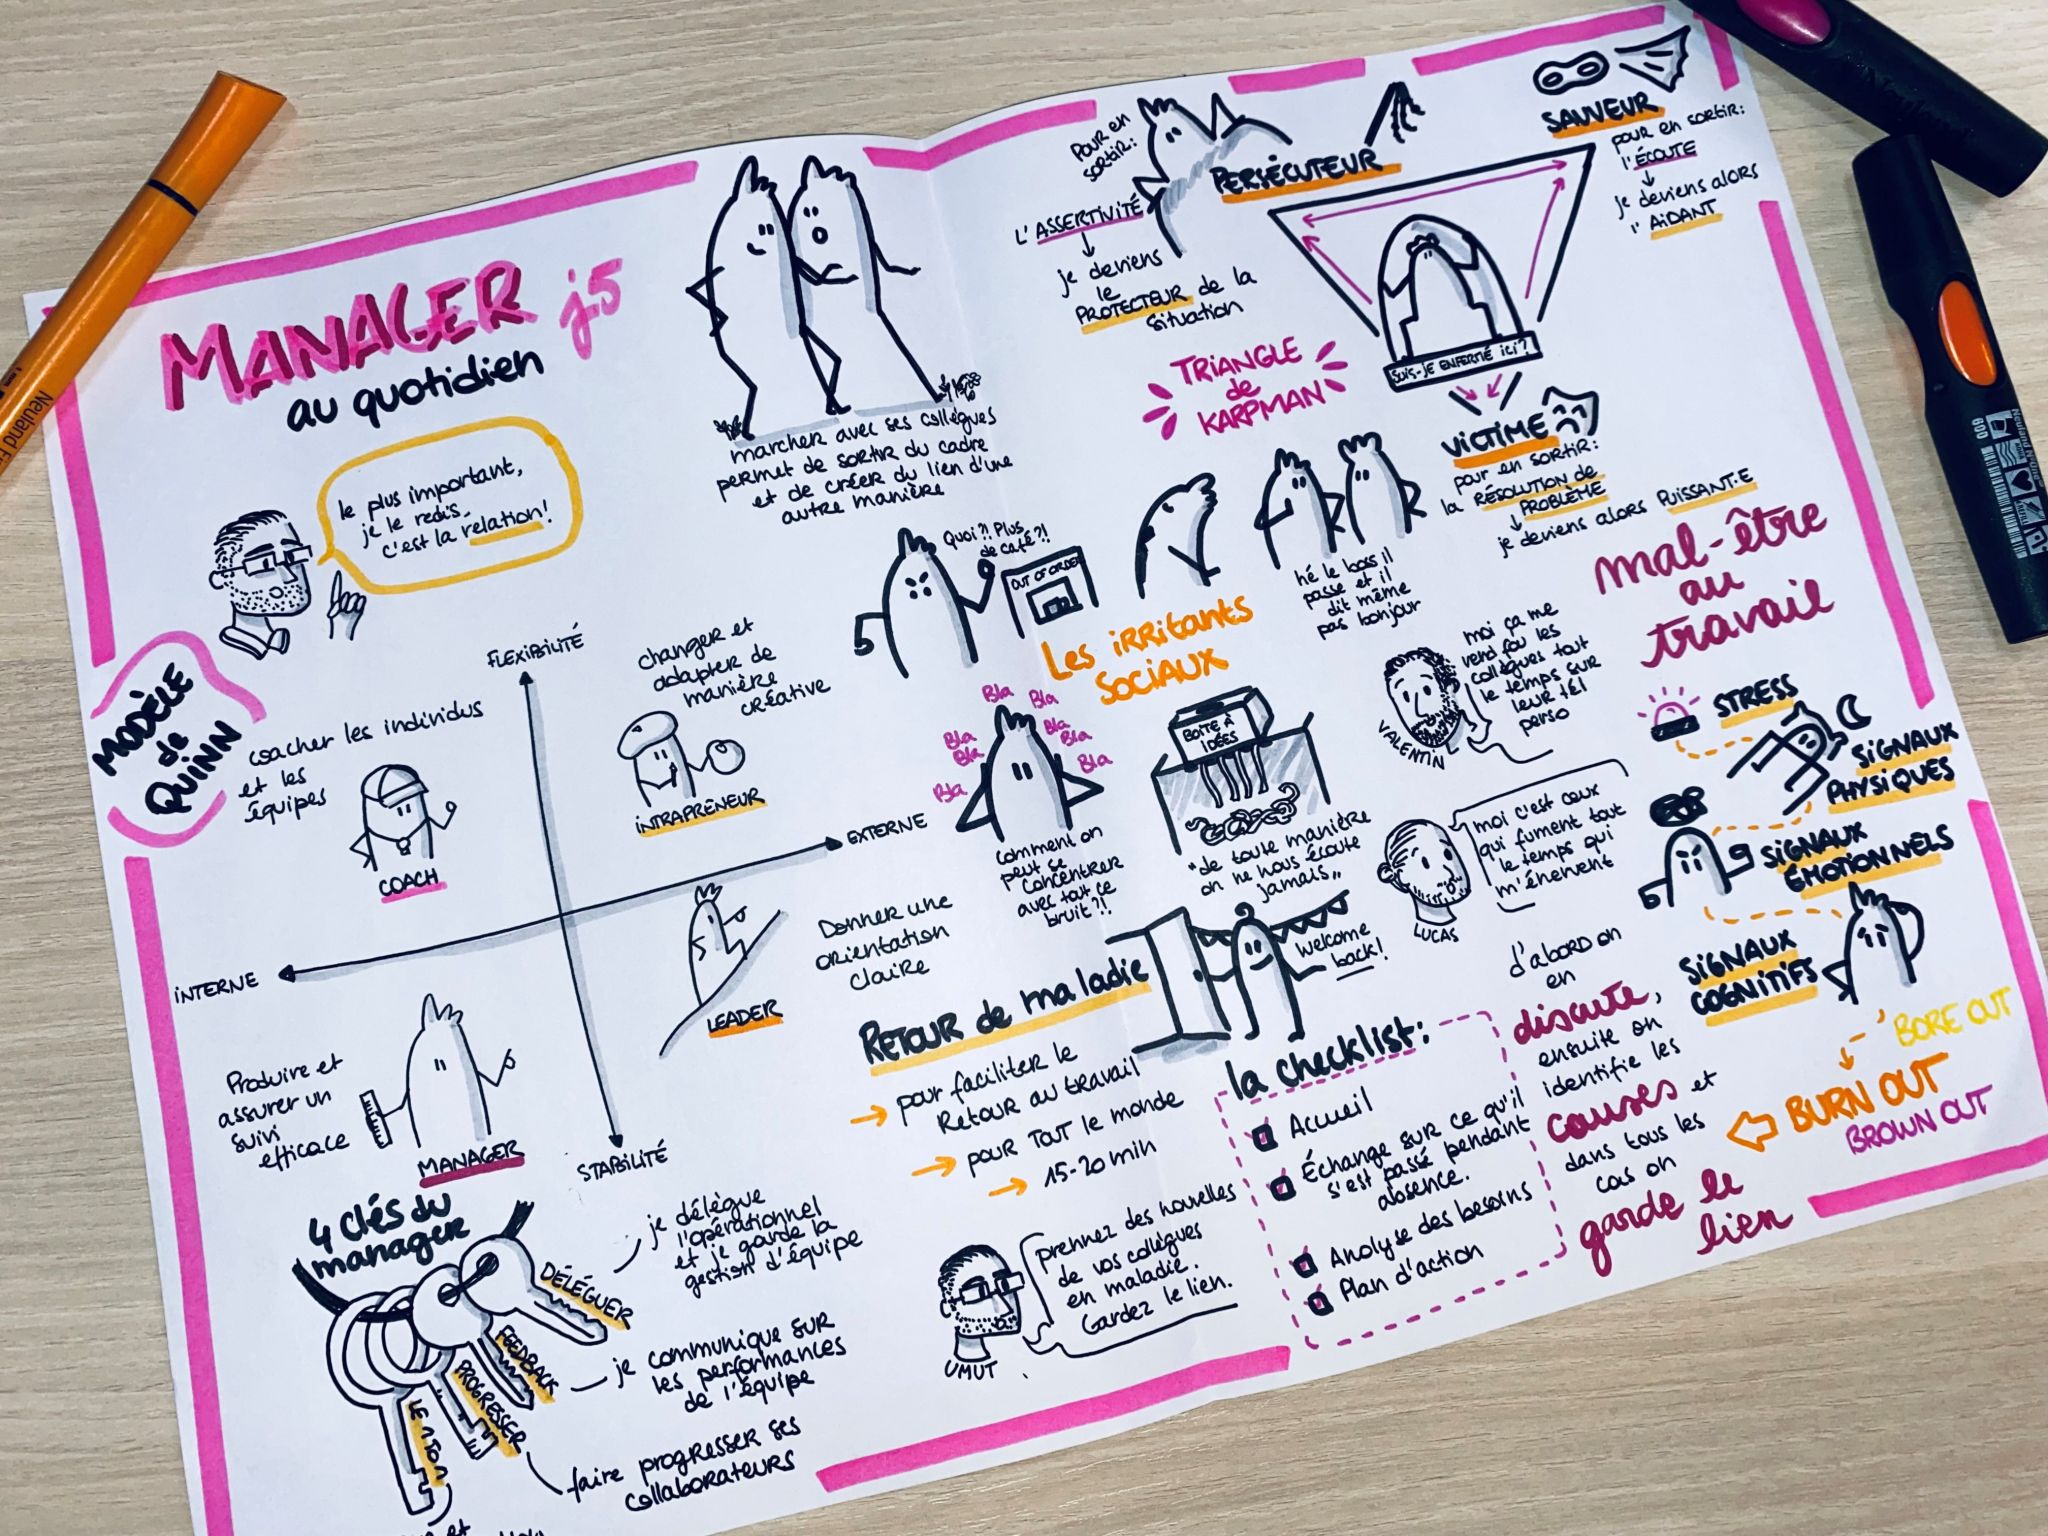 MANAGER j.5
au quotidien
le plus important,
je le redis,
c'est la relation!
marcher avec ses collègues
permet de sortir du cadre
et de créer du lien d'une
autre manière
MODÈLE
de
QUINN
FLEXIBILITÉ
EXTERNE
INTERNE
STABILITÉ
coacher les individus
et les
équipes
COACH
changer et
adapter de
manière
créative
INTRAPRENEUR
Donner une
orientation
claire
LEADER
Produire et
assurer un
suivi
efficace
MANAGER
4 clés du
manager
DÉLÉGUER
je délègue
l'opérationnel
et je garde la
gestion d'équipe
FEEDBACK
je communique sur
les performances
de l'équipe
PROGRESSER
faire progresser ses
collaborateurs
et
POUR EN
SORTIR:
L'ASSERTIVITÉ
je deviens
le
PROTECTEUR de la
situation
PERSÉCUTEUR
SAUVEUR
pour en sortir:
l'ÉCOUTE
je deviens alors
l'AIDANT
SUIS-JE ENFERMÉ ici?
TRIANGLE
de
KARPMAN
VICTIME
pour en sortir:
la RÉSOLUTION de
PROBLÈME
je deviens alors PUISSANT·E
Quoi?! Plus
de café?!
OUT OF ORDER
Les irritants
sociaux
hé le boss il
passe et il
dit même
pas bonjour
Bla
Bla
Bla
Bla
Bla
Bla
Bla
Bla
comment on
peut se
concentrer
avec tout ce
bruit?!
BOÎTE À
IDÉES
"de toute manière
on ne nous écoute
jamais"
moi ça me
rend fou les
collègues tout
le temps sur
leur tél
perso
VALENTIN
moi c'est ceux
qui fument tout
le temps qui
m'énervent
LUCAS
Retour de maladie
Welcome
back!
pour faciliter le
Retour au travail
pour TOUT le monde
15-20 min
UMUT
prennez des nouvelles
de vos collègues
en maladie.
Gardez le lien.
la checklist:
Accueil
Échange sur ce qu'il
s'est passé pendant
absence.
Analyse des besoins
Plan d'action
mal-être
au
travail
STRESS
SIGNAUX
PHYSIQUES
SIGNAUX
ÉMOTIONNELS
SIGNAUX
COGNITIFS
BORE OUT
BURN OUT
BROWN OUT
d'abord on
en
discute,
ensuite on
identifie les
causes et
dans tous les
cas on
garde le
lien
Neuland
600